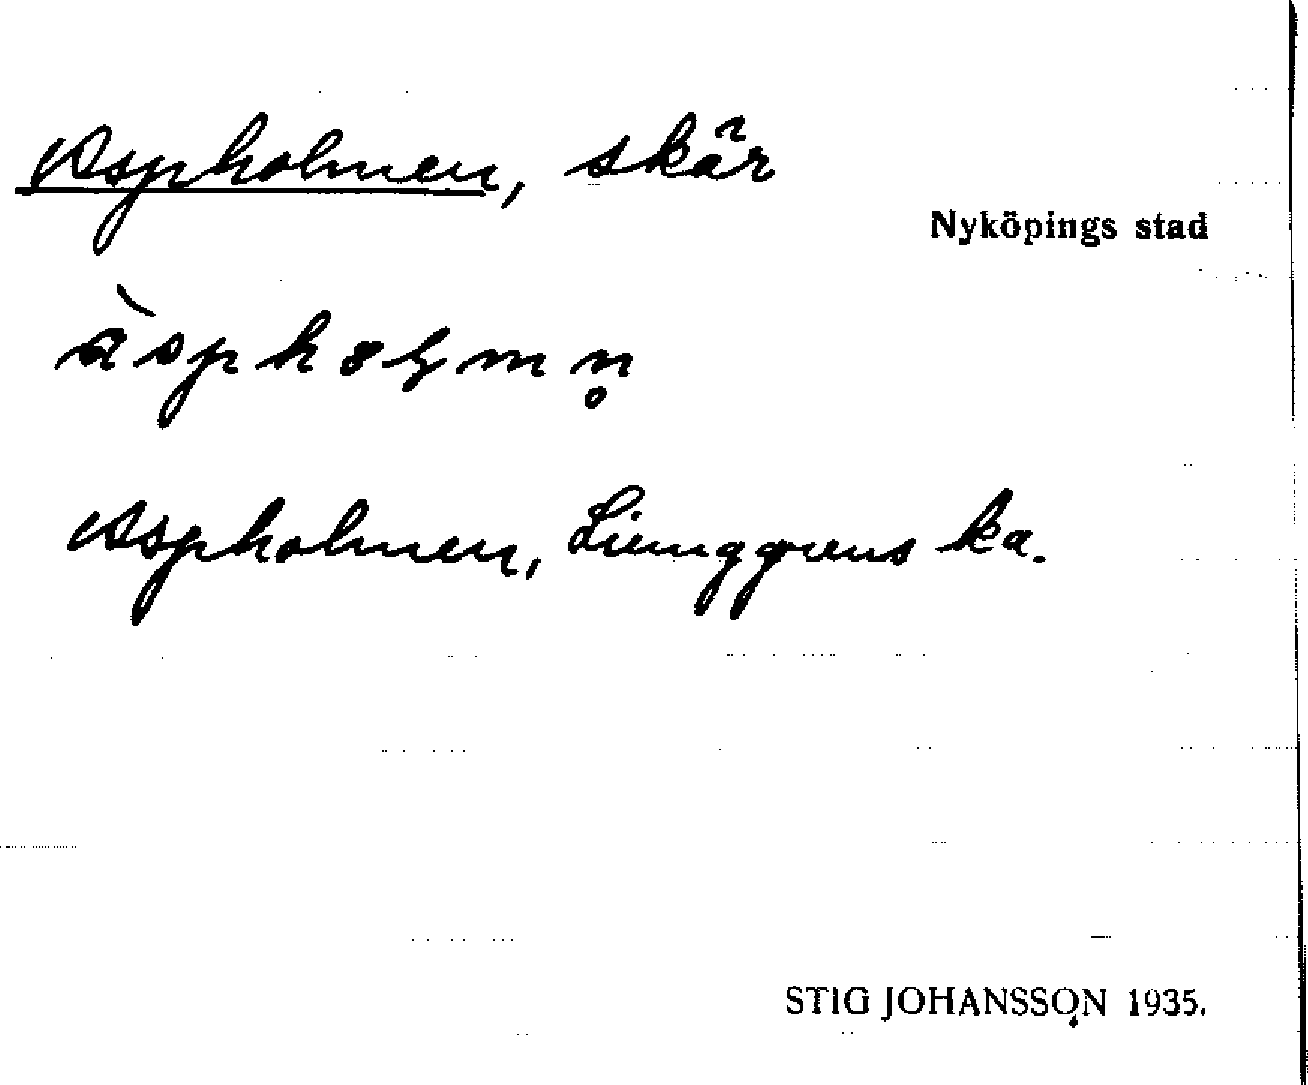 Aspholmen, skär
Nyköpings stad
Aspholmen, Ljunggrens ka.
STIG JOHANSSON 1935.